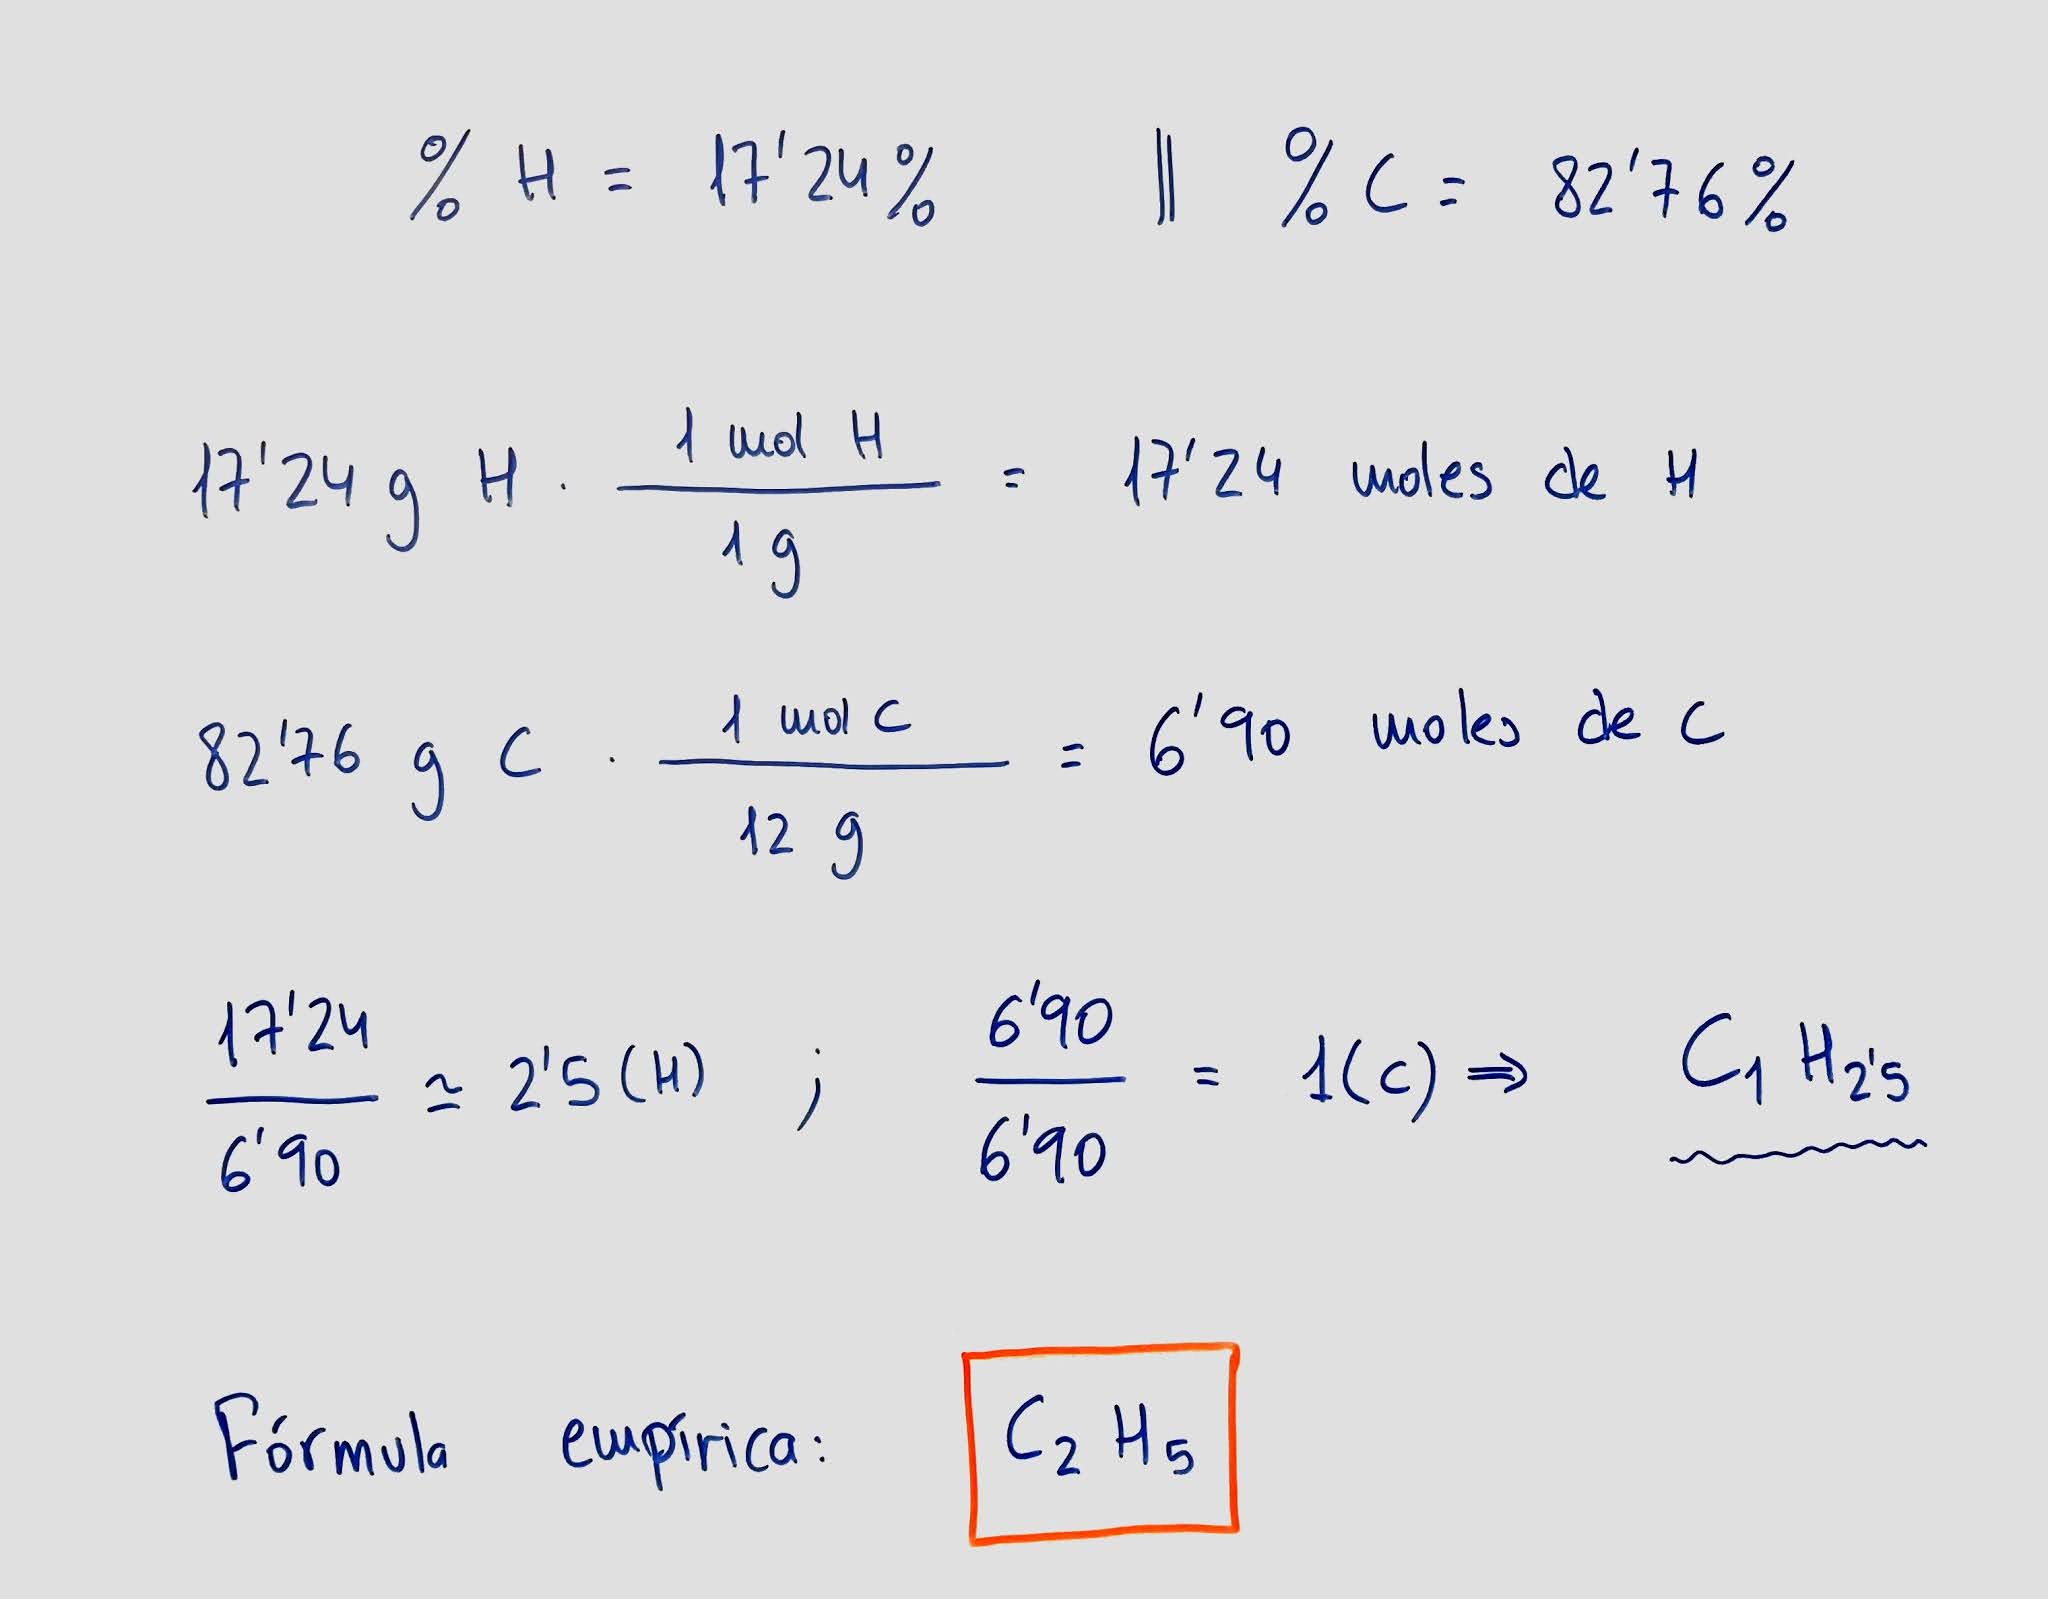 % H = 17'24% || % C = 82'76%
17'24 g H · 1 mol H / 1 g = 17'24 moles de H
82'76 g C · 1 mol C / 12 g = 6'90 moles de C
17'24 / 6'90 ≃ 2'5 (H) ; 6'90 / 6'90 = 1 (C) ⇒ C₁ H₂'₅
Fórmula empírica: C₂ H₅